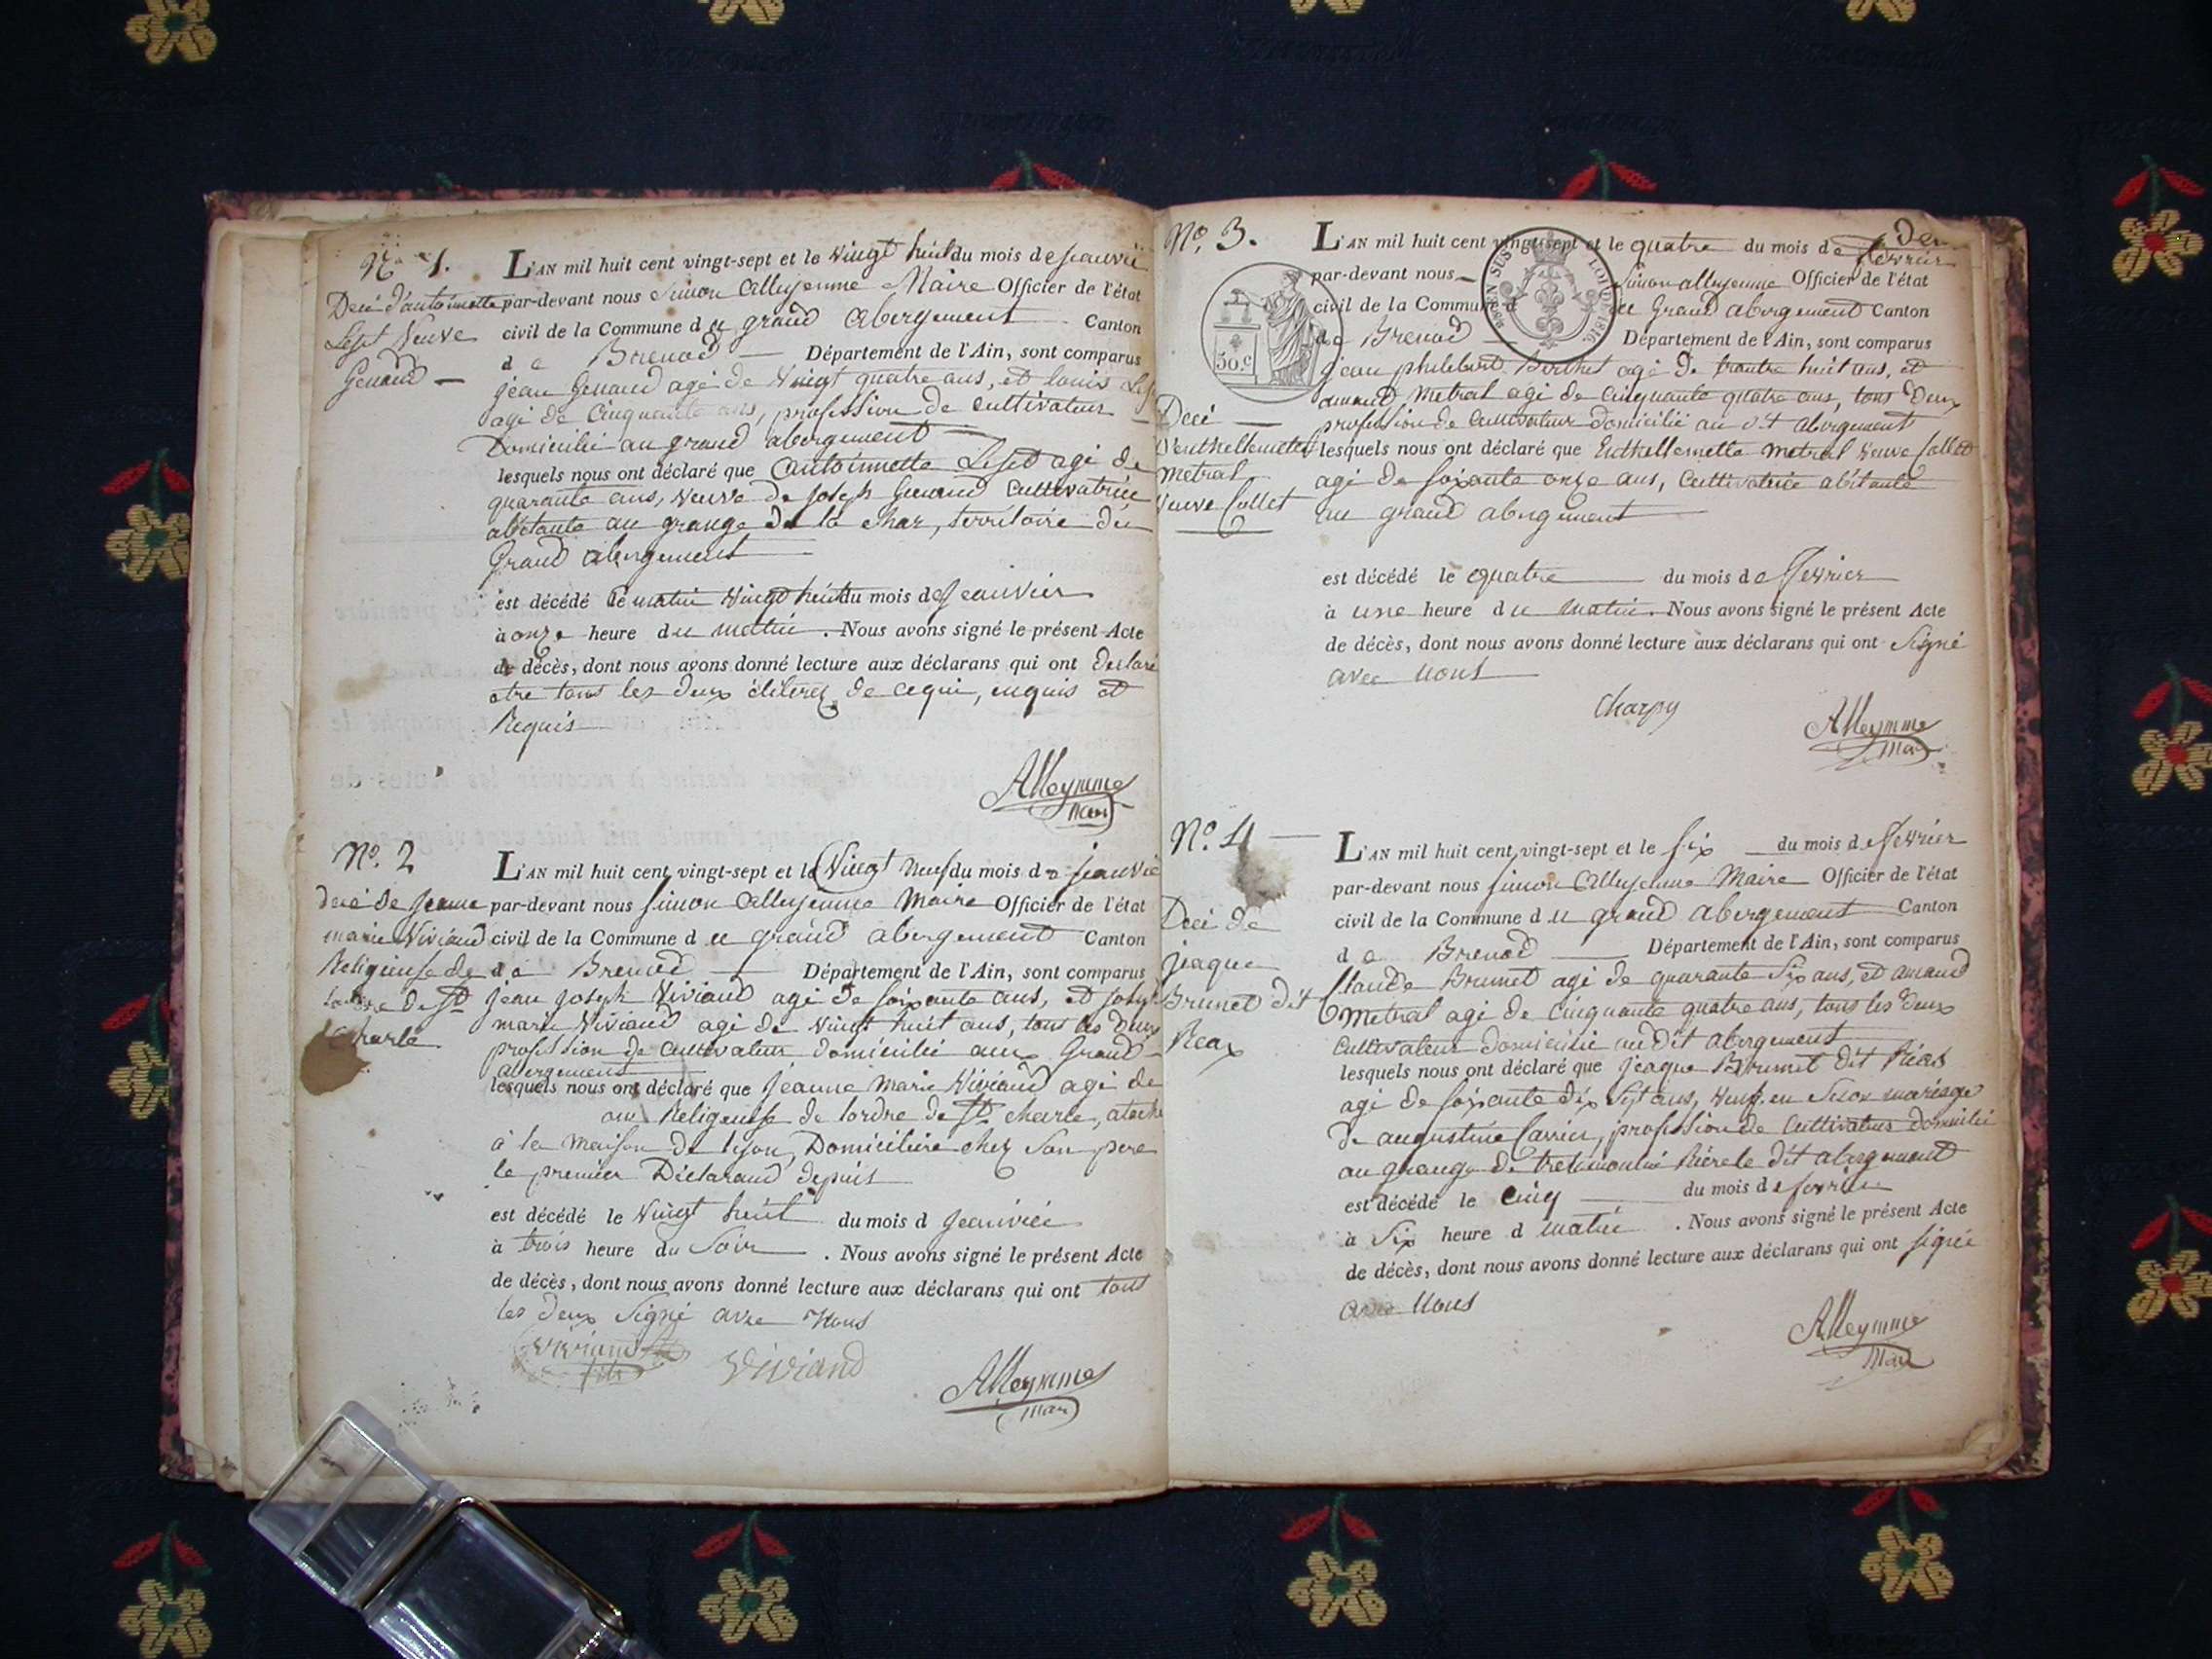 N° 1.
Decé d'antoinette
Lesest Veuve
Genaud —
L'AN mil huit cent vingt-sept et le Vingt huit du mois de Jeanvié
par-devant nous Simon Alleyemme Maire Officier de l'état
civil de la Commune d u grand abergement Canton
d e Brenod — Département de l'Ain, sont comparus
jean Genaud agé de Vingt quatre ans, et louis
agé de Cinquante ans, profession de cultivateur
Domicilié au grand abergement —
lesquels nous ont déclaré que antoinette agé de
quarante ans, Veuve de Joseph Genaud Cultivatrice
abitante au grange de la Char, territoire du
Grand abergement
est décédé le matin Vingt huit du mois de Jeanvier
à onze heure du matin. Nous avons signé le présent Acte
de décès, dont nous avons donné lecture aux déclarans qui ont declaré
etre tous les deux de cequi, enquis et
Requis
Alleymme
Mair
N° 2
decé de Jeanne
marie Viviand
Religieuse de
de St
Charle
L'AN mil huit cent vingt-sept et le Vingt neuf du mois de jeanvié
par-devant nous Simon Alleyemme Maire Officier de l'état
civil de la Commune d u grand abergement Canton
d e Brenod — Département de l'Ain, sont comparus
jean joseph Viviand agé de soixante ans, et joseph
marie Viviand agé de Vingt huit ans, tous les deux
profession de cultivateur domicilié aux Grand
abergement
lesquels nous ont déclaré que Jeanne Marie Viviand agé de
Religieuse de lordre de St charle,
à la maison de lyon, Domiciliere chez son pere
le premier Déclarand depuis
est décédé le Vingt huit du mois d Jeanvié
à trois heure du Soir. Nous avons signé le présent Acte
de décès, dont nous avons donné lecture aux déclarans qui ont tous
les deux Signé avec Nous
Viviand
fils
Viviand
Alleymme
Mair
N° 3.
Decé —
D'enthellemette
Metral
Veuve Collet
L'AN mil huit cent vingt-sept et le quatre du mois de fevrier
par-devant nous Simon alleyemme Officier de l'état
civil de la Commune d u Grand abergement Canton
de Brenod Département de l'Ain, sont comparus
50 c
LOI DE 1816
jean philibert Berthet agé de trantre huit ans, et
amand Metral agé de cinquante quatre ans, tous deux
profession de Cultivateur domicilié au dt abergement
lesquels nous ont déclaré que Enthellemette metral Veuve Collet
agé de soixante onze ans, Cultivatrice abitante
au grand abergement
est décédé le quatre du mois de fevrier
à une heure du matin. Nous avons signé le présent Acte
de décès, dont nous avons donné lecture aux déclarans qui ont Signé
avec nous
Charpy
Alleymme
Mair
N° 4 —
Decé de
jeaque
Brunet dit
Reax
L'AN mil huit cent vingt-sept et le six du mois de fevrier
par-devant nous simon Alleyemme Maire Officier de l'état
civil de la Commune d u grand abergement Canton
d e Brenod — Département de l'Ain, sont comparus
Claude Brunet agé de quarante Six ans, et amand
Metral agé de Cinquante quatre ans, tous les deux
Cultivateur domicilié audit abergement
lesquels nous ont déclaré que jeaque Brunet dit
agé de soixante dix sept ans, Veuf en mariage
de augustine Carrier, profession de Cultivateur domicilié
au grange de le dit abergement
est décédé le Cinq du mois de fevrier
à Six heure d matin. Nous avons signé le présent Acte
de décès, dont nous avons donné lecture aux déclarans qui ont signé
avec Nous
Alleymme
Mair